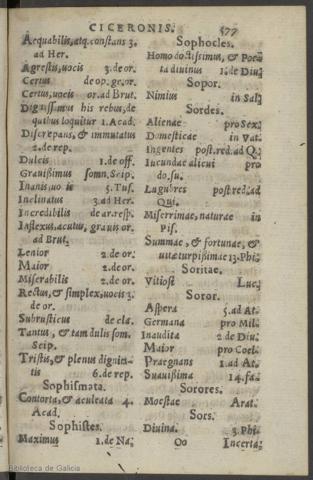 CICERONIS.
577
Aequabilis, atq; constans 3.
ad Her.
Agrestis, uocis 3. de or.
Certus de op. ge. or.
Certus, uocis or. ad Brut.
Dignissimus his rebus, de
quibus loquitur 1. Acad.
Discrepans, & immutatus
2. de rep.
Dulcis 1. de off.
Grauissimus somn. Scip.
Inanis, uo is 5. Tus.
Inclinatus 3. ad Her.
Incredibilis de ar. resp.
Inflexus, acutus, grauis or.
ad Brut.
Lenior 2. de or.
Maior 2. de or.
Miserabilis 2. de or.
Rectus, & simplex, uocis 3.
de or.
Subrusticus de cla.
Tantus, & tam dulis som.
Scip.
Tristis, & plenus dignita-
tis 6. de rep.
Sophismata.
Contorta, & aculeata 4.
Acad.
Sophistes.
Maximus 1. de Na;
Sophocles.
Homo doctissimus, & Poë-
ta diuinus 1. de Diu;
Sopor.
Nimius in Sal;
Sordes.
Alienae pro Sex;
Domesticae in Vat.
Ingentes post. red. ad Q;
Iucundae alicui pro
do. su.
Lugubres post red. ad
Qui.
Miserrimae, naturae in
Pis.
Summae, & fortunae, &
uitae turpissimae 13. Phi.
Soritae.
Vitiosi Luc;
Soror.
Aspera 5. ad At.
Germana pro Mil.
Inaudita 2. de Diu;
Maior pro Coel.
Praegnans 1. ad At.
Suauissima 14. fa.
Sorores.
Moestae Arat.
Sors.
Diuina. 3. Phi.
Oo Incerta;
Biblioteca de Galicia